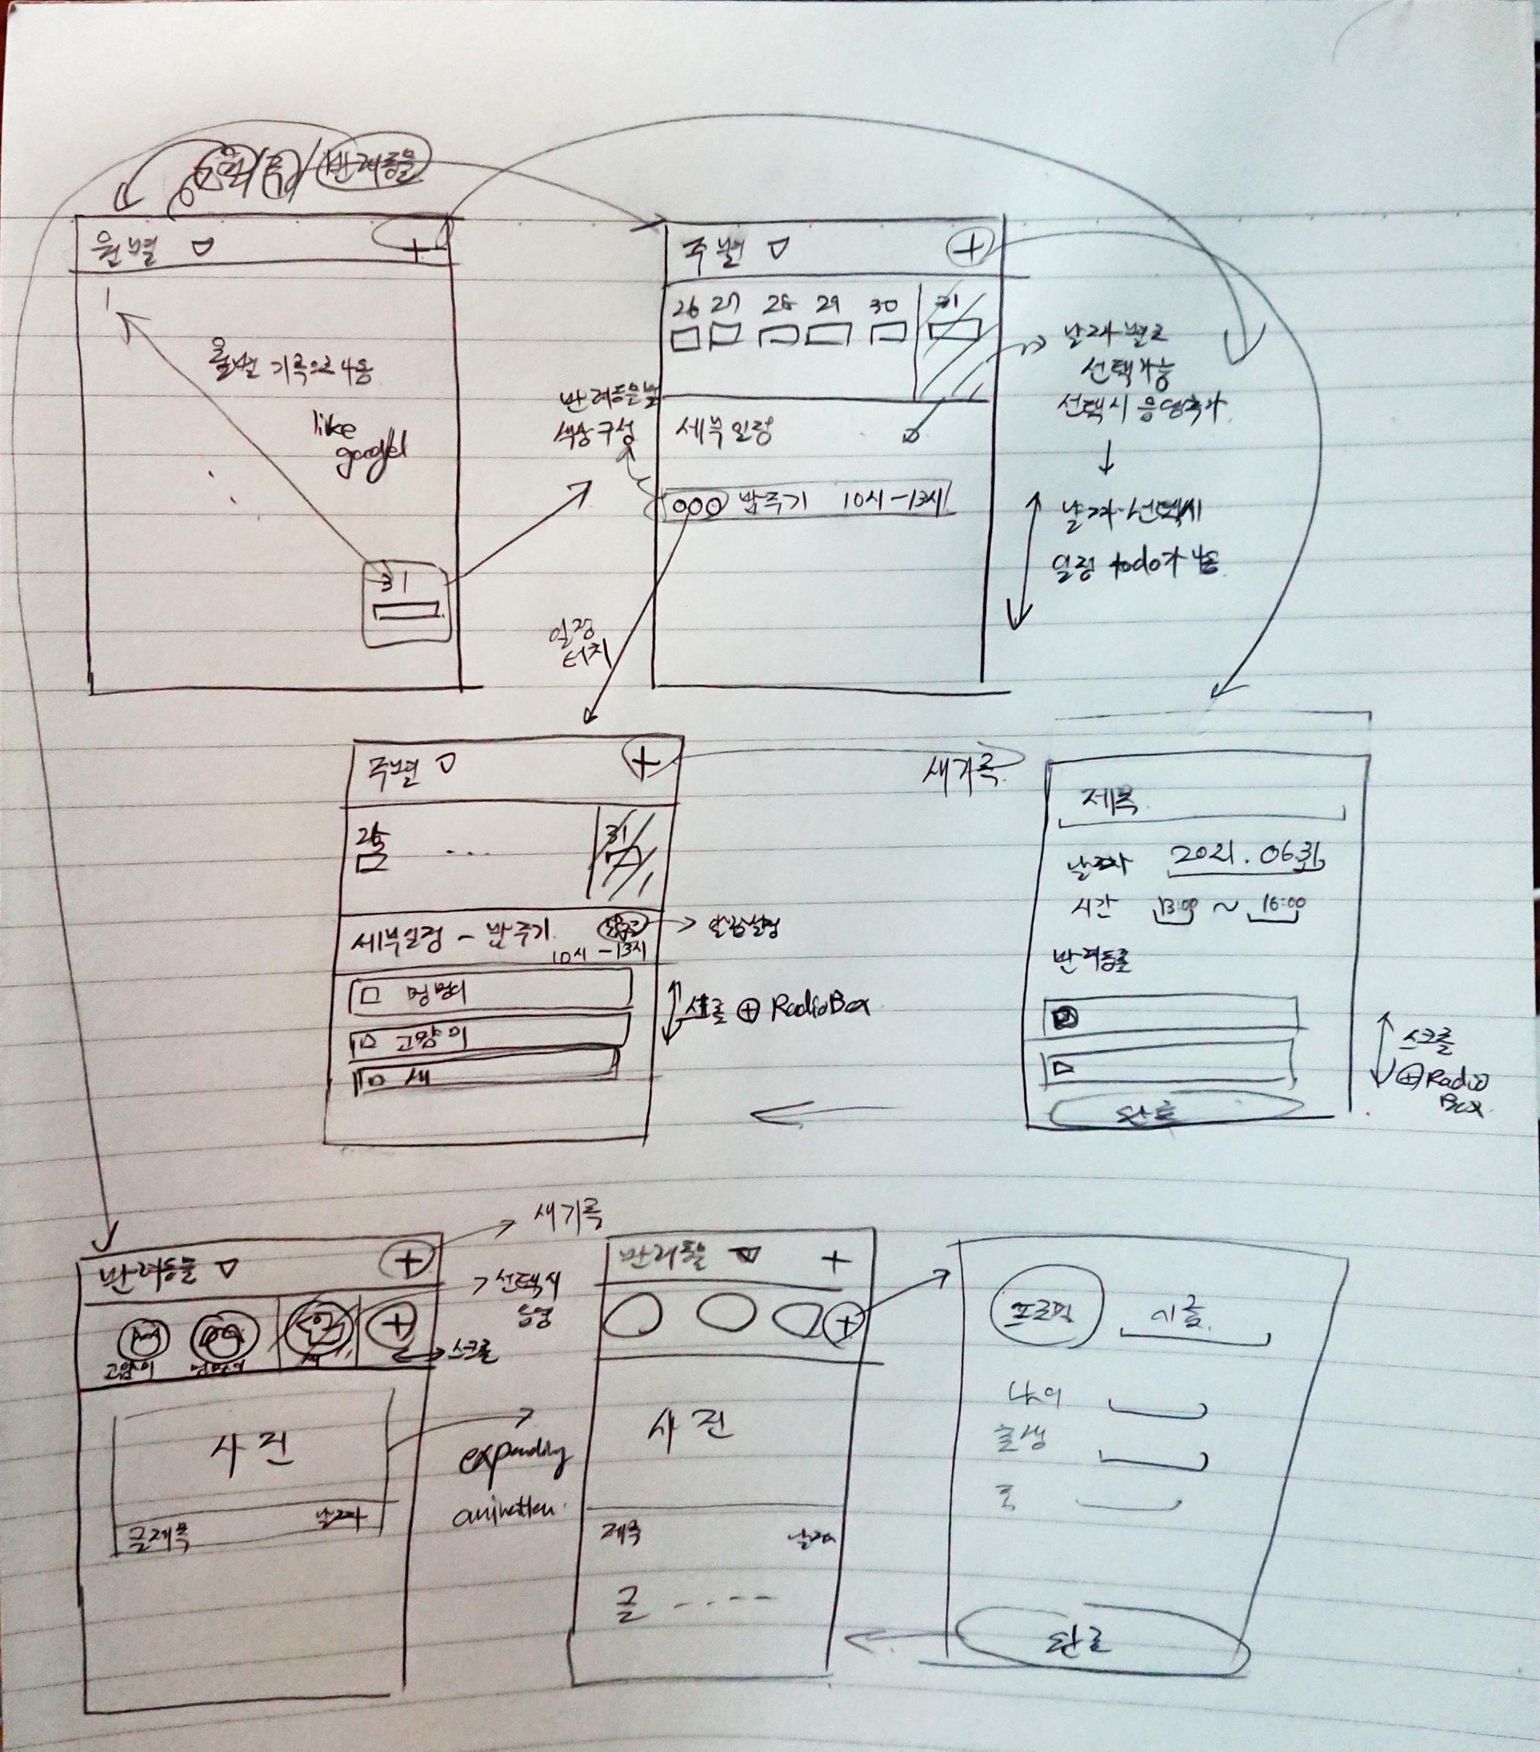 월/주/반려동물
월별
+
1
월별 기록으로 사용
like
google
31
주별
+
26 27 28 29 30 31
세부일정
000 밥주기 10시-13시
반려동물별
색상구성
날짜별로
선택가능
선택시 음영추가
날짜 선택시
일정 todo가 나옴
일정
터치
주별
+
...
31
세부일정 - 밥주기
10시-13시
알람설정
멍멍이
고양이
새
스크롤 ⊕ RadioBox
새기록
제목
날짜 2021.06.31
시간 13:00 ~ 16:00
반려동물
스크롤
⊕ Radio
Box
완료
반려동물
+
새기록
선택시
음영
+
고양이 멍멍이 새
스크롤
사진
글제목 날짜
expanding
animation
반려동물
+
+
사진
제목 날짜
글 -----
프로필 이름
나이
출생
종
완료